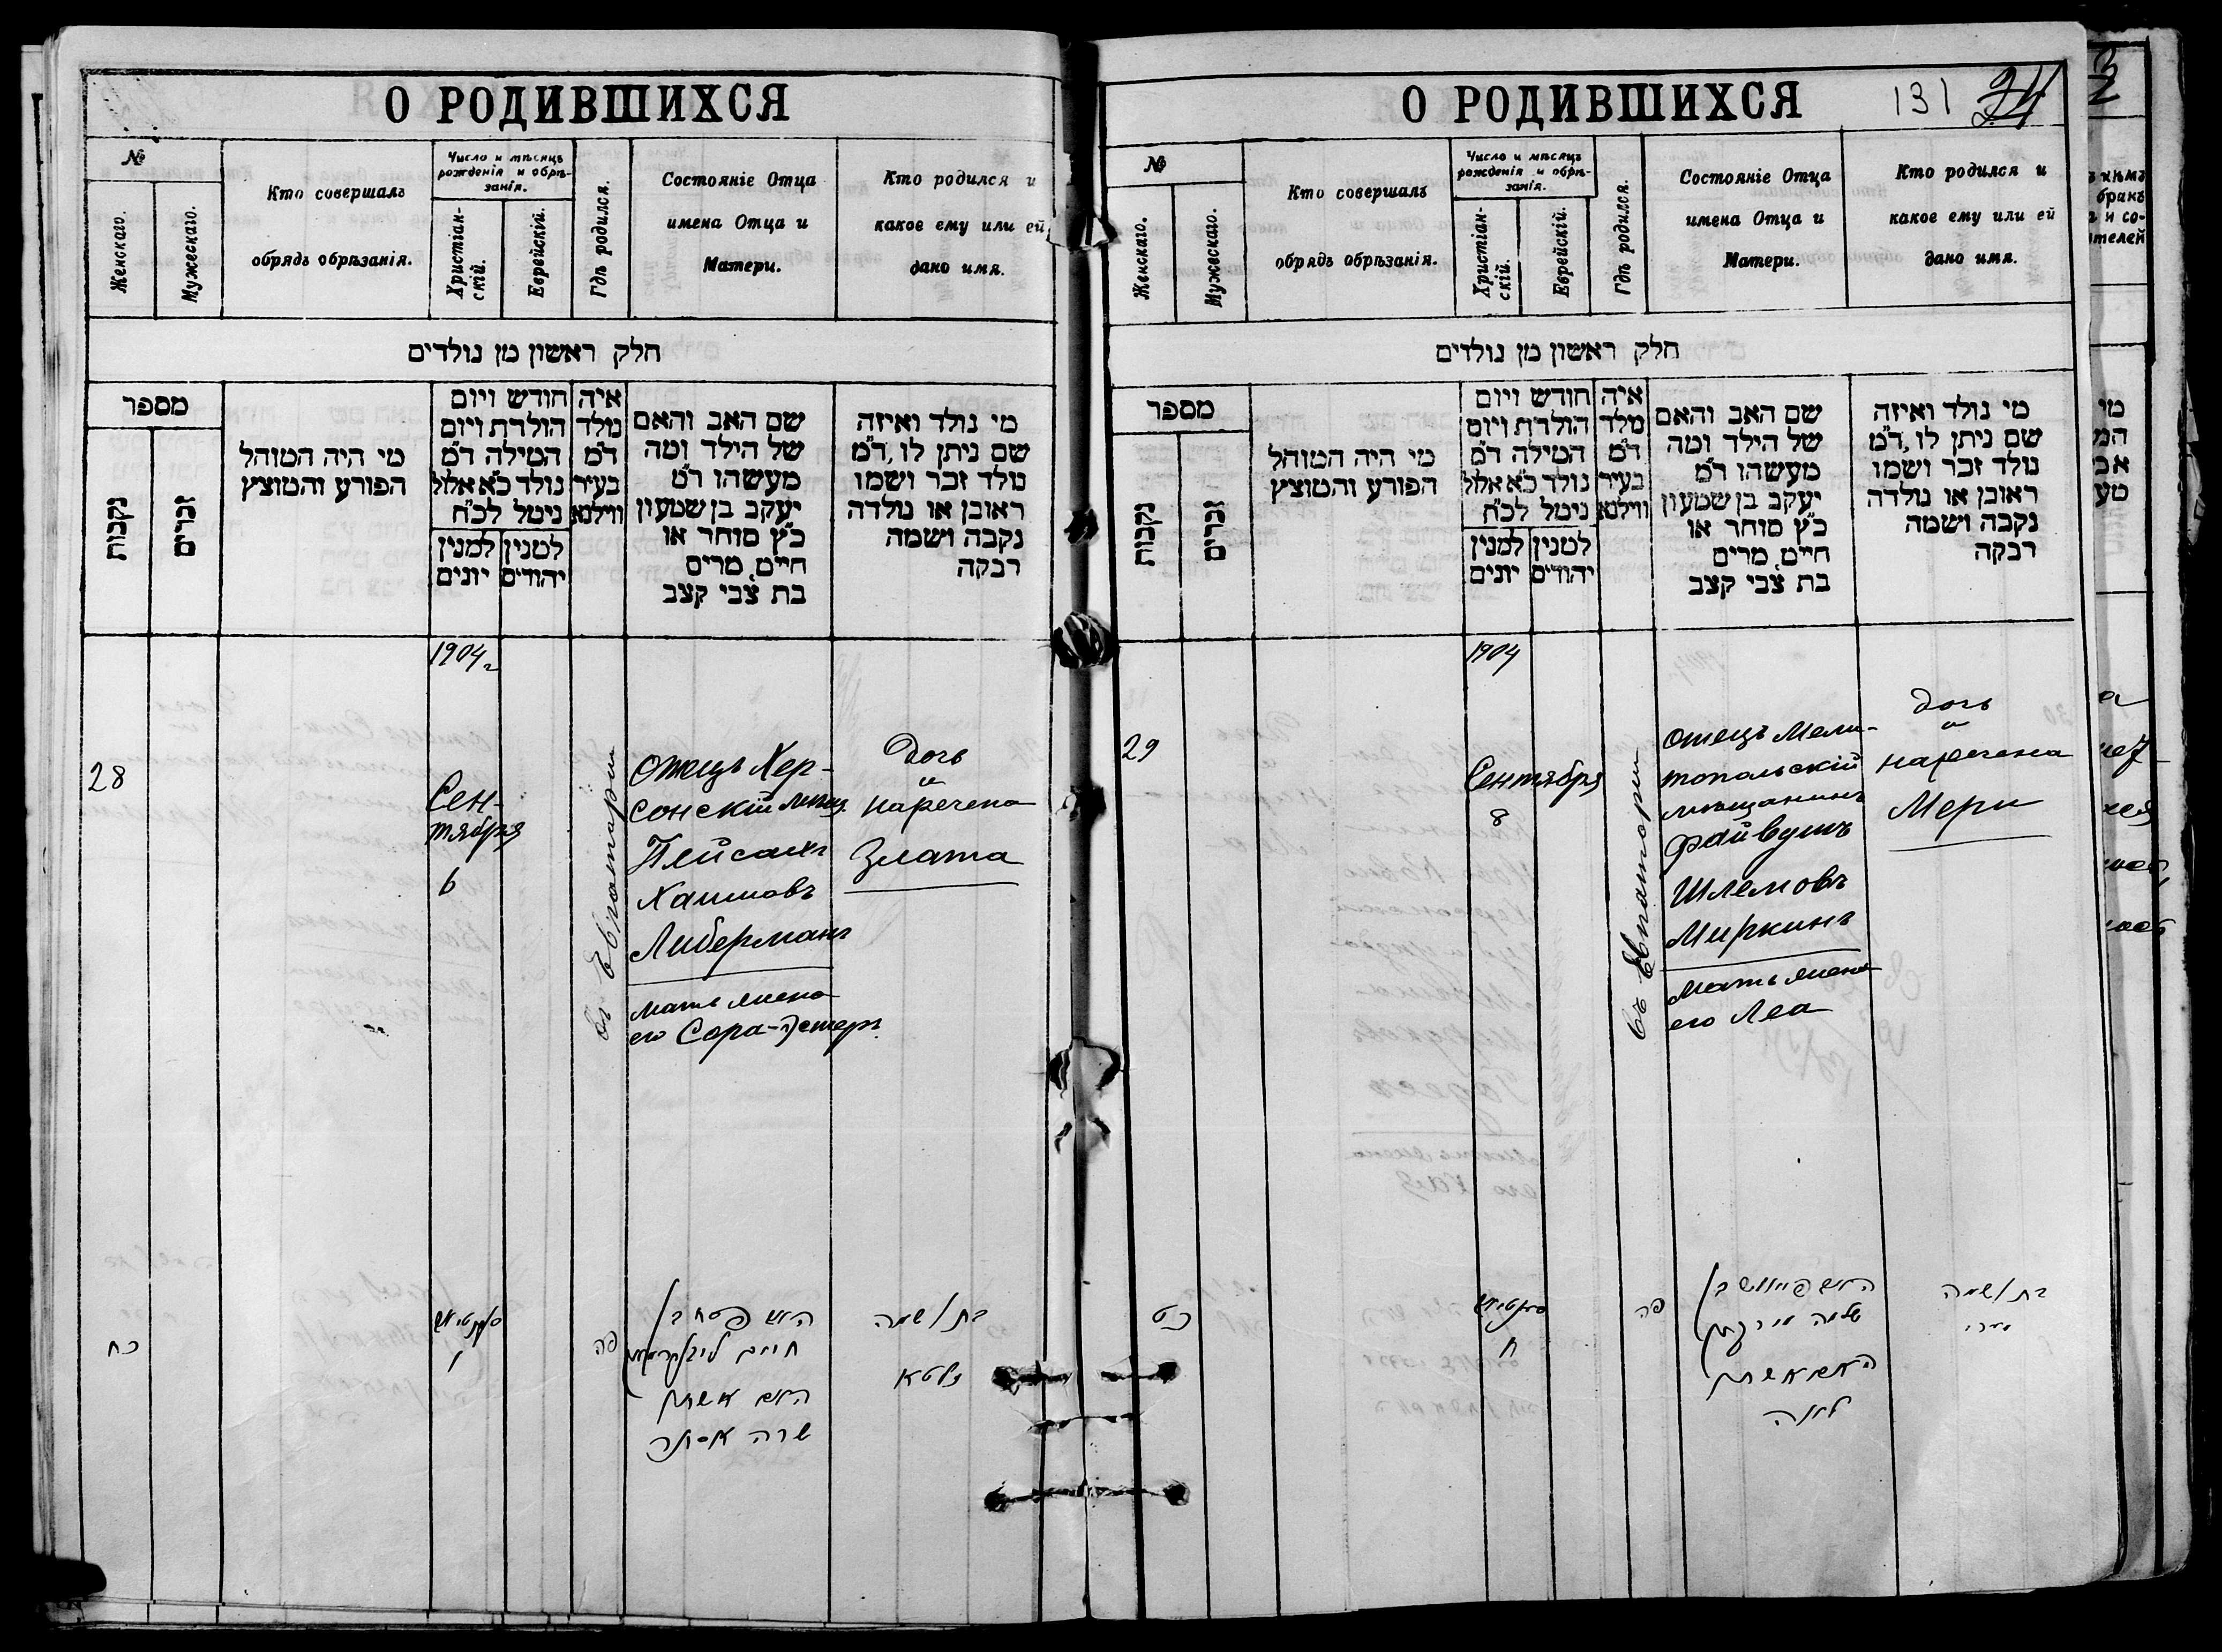 О РОДИВШИХСЯ
№
Женскаго.
Мужескаго.
Кто совершалъ
обрядъ обрѣзанія.
Число и мѣсяцъ
рожденія и обрѣ-
занія.
Христіан-
скій.
Еврейскій.
Гдѣ родился.
Состояніе Отца
имена Отца и
Матери.
Кто родился и
какое ему или ей
дано имя.
חלק ראשון מן נולדים
מספר
נקבות
זכרים
מי היה המוהל
הפורע והמוצץ
חודש ויום
הולדת ויום
המילה ד״מ
נולד כ״א אלול
ניטל לכ״ח
למנין
יונים
למנין
יהודים
איה
מלד
ד״מ
בעיר
ווילנא
שם האב והאם
של הילד ומה
מעשהו ד״מ
יעקב בן שמעון
כ״ץ סוחר או
חיים, מרים
בת צבי קצב
מי נולד ואיזה
שם ניתן לו, ד״מ
נולד זכר ושמו
ראובן או נולדה
נקבה ושמה
רבקה
1904 г
28
Сен-
тября
6
въ Евпаторіи
Отецъ Хер-
сонскій мѣщ.
Пейсахъ
Хаимовъ
Либерманъ
мать жена
его Сора-Эстеръ
Дочь
и
наречена
Злата
כח
ו
פה
האיש פסח בן
חיים ליבערמאן
האם אשתו
שרה אסתר
בת ושמה
זלטא
О РОДИВШИХСЯ
131
34
№
Женскаго.
Мужескаго.
Кто совершалъ
обрядъ обрѣзанія.
Число и мѣсяцъ
рожденія и обрѣ-
занія.
Христіан-
скій.
Еврейскій.
Гдѣ родился.
Состояніе Отца
имена Отца и
Матери.
Кто родился и
какое ему или ей
дано имя.
חלק ראשון מן נולדים
מספר
נקבות
זכרים
מי היה המוהל
הפורע והמוצץ
חודש ויום
הולדת ויום
המילה ד״מ
נולד כ״א אלול
ניטל לכ״ח
למנין
יונים
למנין
יהודים
איה
מלד
ד״מ
בעיר
ווילנא
שם האב והאם
של הילד ומה
מעשהו ד״מ
יעקב בן שמעון
כ״ץ סוחר או
חיים, מרים
בת צבי קצב
מי נולד ואיזה
שם ניתן לו, ד״מ
נולד זכר ושמו
ראובן או נולדה
נקבה ושמה
רבקה
1904
29
Сентября
8
въ Евпаторіи
Отецъ Мели-
топольскій
мѣщанинъ
Файвушъ
Шлемовъ
Миркинъ
Мать жена
его Леа
дочь
и
наречена
Мери
כט
ח
פה
האיש פייוויש בן
שלמה מירקין
האם אשתו
לאה
בת ושמה
מרי